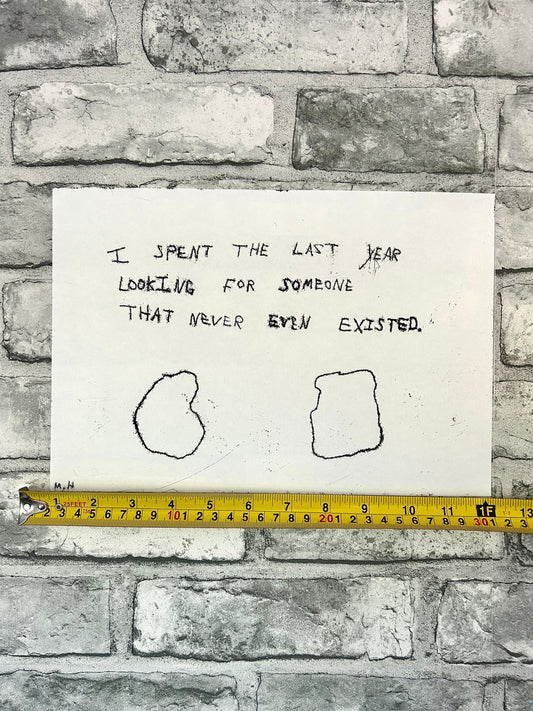 I SPENT THE LAST YEAR
LOOKING FOR SOMEONE
THAT NEVER EVEN EXISTED.
M.H
25FEET 1 2 3 4 5 6 7 8 9 10 11 1F 13
2 3 4 5 6 7 8 9 10 1 2 3 4 5 6 7 8 9 20 1 2 3 4 5 6 7 8 9 30 1 2 3